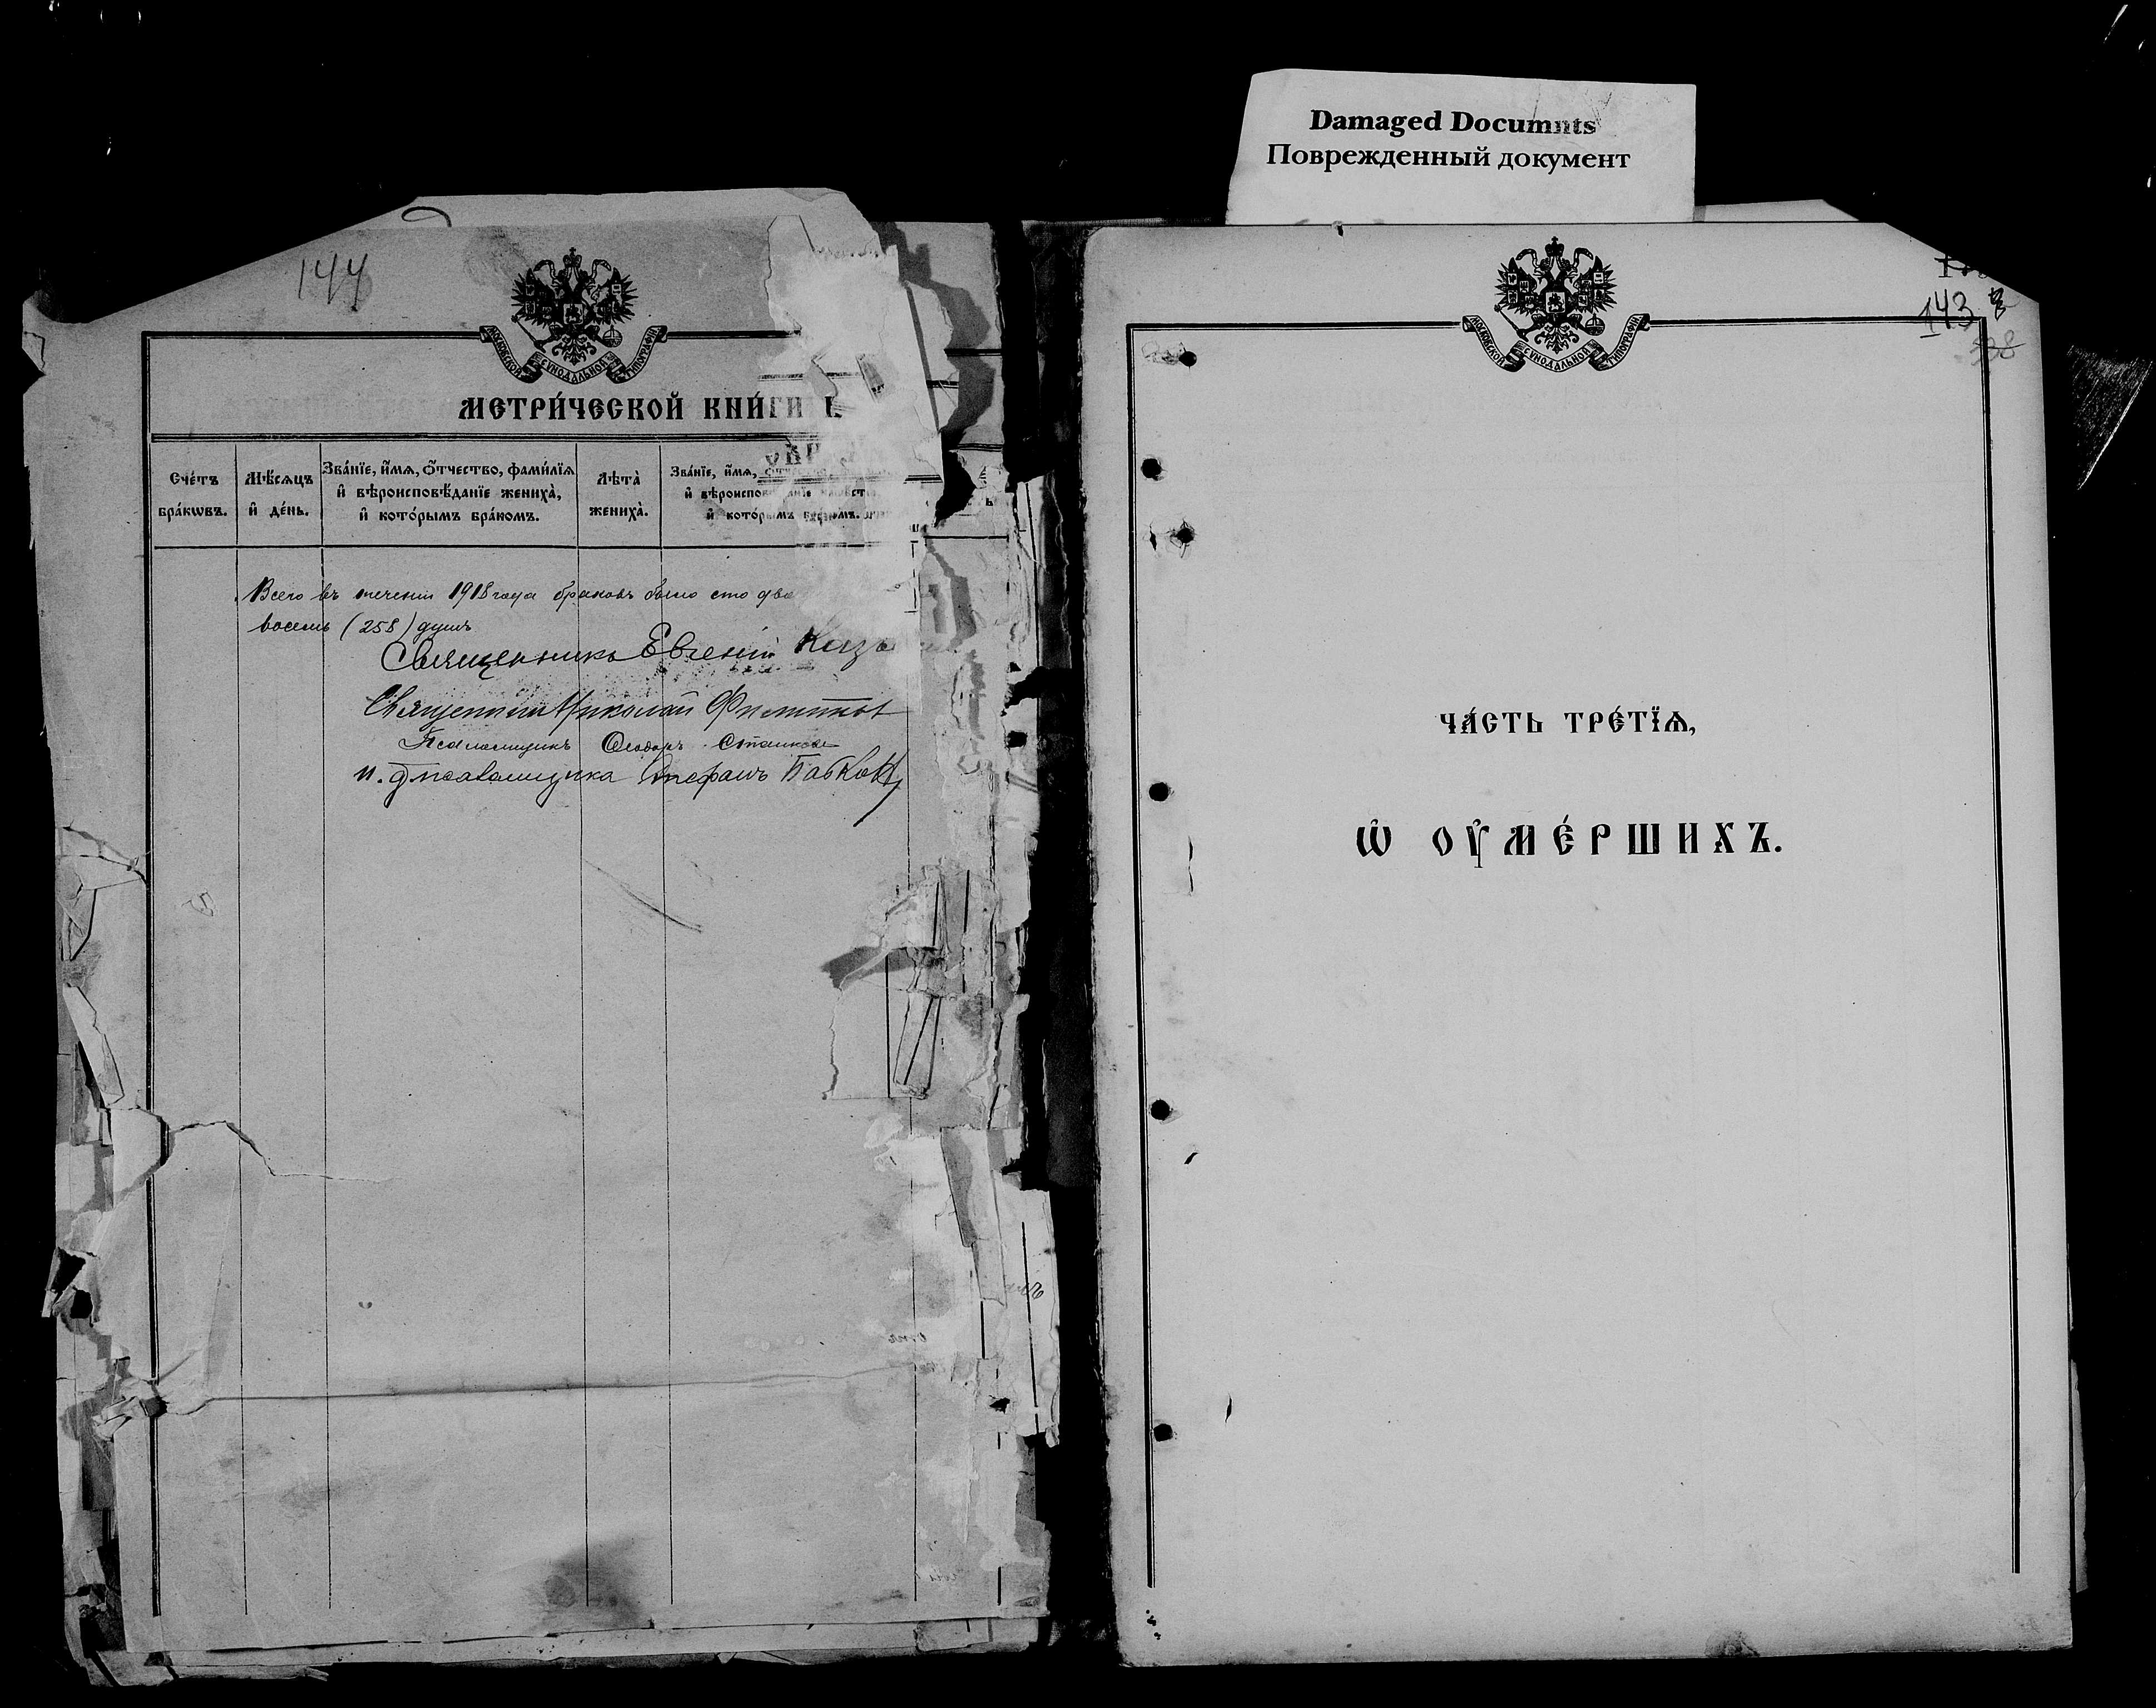 Damaged Documnts
Поврежденный документ
144
МОСКОВСКОЙ СѴНОДАЛЬНОЙ ТИПОГРАФІИ
МЕТРИ́ЧЕСКОЙ КНИ́ГИ
Сче́тъ бра́кѡвъ.
Мѣ́сѧцъ и҆ де́нь.
Зва́нїе, и҆́мѧ, ѻ҆́тчество, фами́лїѧ
и҆ вѣроисповѣ́данїе жениха̀,
и҆ кото́рымъ бра́комъ.
Лѣта̀ жениха̀.
Зва́нїе, и҆́мѧ,
и҆ кото́рымъ
Всего въ течении 1918 года браковъ было сто
восемь (258) душъ
Священникъ Евгеній
Священникъ Николай Филиппов
Псаломщикъ Ѳеодоръ
и. д. псаломщика
143
МОСКОВСКОЙ СѴНОДАЛЬНОЙ ТИПОГРАФІИ
ЧА́СТЬ ТРЕ́ТЇѦ,
Ѡ҆ ОУ҆МЕ́РШИХЪ.